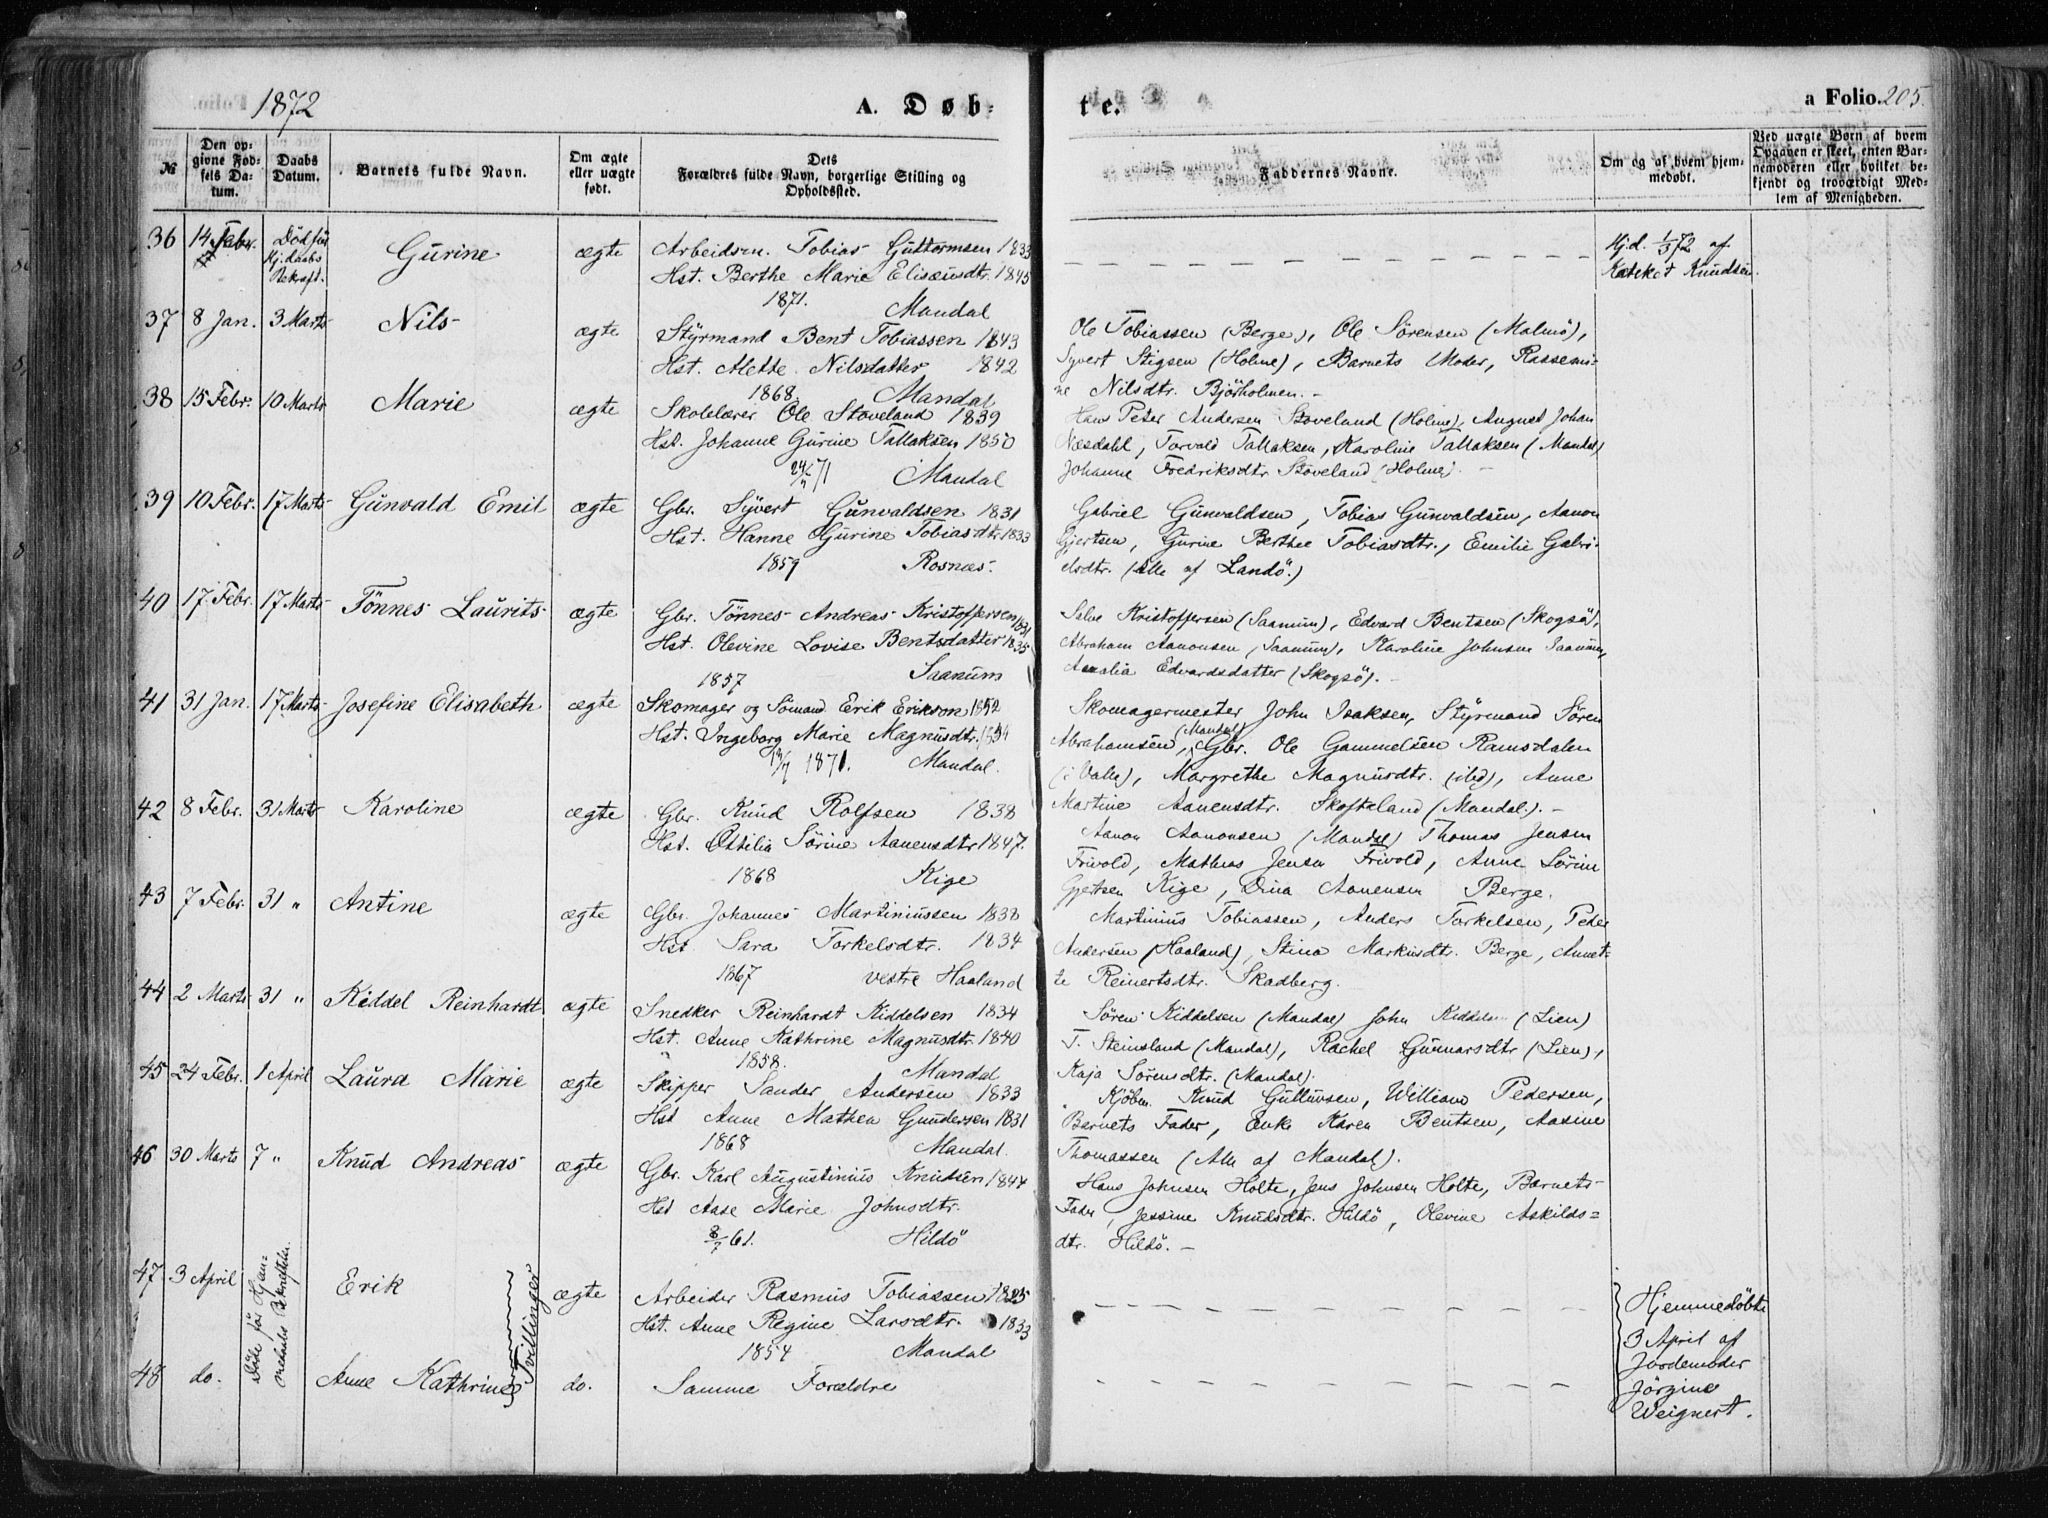 1872
A. Døb-
te.
a Folio. 205.
№
Den op-
givne Fød-
sels Da-
tum.
Daabs
Datum.
Barnets fulde Navn.
Om ægte
eller uægte
født.
Dets
Forældres fulde Navn, borgerlige Stilling og
Opholdssted.
Faddernes Navne.
Om og af hvem hjem-
medøbt.
Ved uægte Børn af hvem
Opgaven er skeet, enten Bar-
nemoderen eller hvilket be-
kjendt og troværdigt Med-
lem af Menigheden.
36 14 Febr. Død før Gurine ægte Arbeidsm. Tobias Guttormsen 1833
Hj.daabs
Bekræft. Hst. Berthe Marie Elisæusdtr. 1845
1871. Mandal
Hj.d. 1/3 72 af
Katekét Knudsen.
37 8 Jan. 3 Marts Nils ægte Styrmand Bent Tobiassen 1843
Hst. Mette Nilsdatter 1842
1868. Mandal
Ole Tobiassen (Berge), Ole Sörensen (Malmö),
Syvert Stigsen (Holme), Barnets Moder, Rassemi-
ne Nilsdtr. Bjørholmen.-
38 15 Febr. 10 Marts Marie ægte Skolelærer Ole Stoveland 1839
Hst. Johanne Gurine Tallaksen 1850
71 Mandal
Hans Peter Andersen Stoveland (Holme), August Johan
Næsdahl, Torvald Tallaksen, Karoline Tallaksen (Mandal)
Johanne Fredriksdtr. Stoveland (Holme). -
39 10 Febr. 17 Marts Gunvald Emil ægte Gbr. Syvert Gunvaldsen 1831
Hst. Hanne Gurine Tobiasdtr. 1833
1859 Rosnæs.
Gabriel Gunvaldsen, Tobias Gunvaldsen, Aanon
Gjertsen, Gurine Berthee Tobiasdtr., Emilie Gabri-
elsdtr. (Alle af Landö.)
40 17 Febr. 17 Marts Tönnes Laurits ægte Gbr. Tönnes Andreas Kristoffersen 1831
Hst. Olevine Lovise Bentsdatter 1835
1857 Saanum
Salve Kristoffersen (Saanum), Edvard Bentsen (Skogsö),
Abraham Aanonsen (Saanum), Karoline Johnsen Saanum,
Amalia Edvardsdatter (Skogsö). -
41 31 Jan. 17 Marts Josefine Elisabeth ægte Skomager og Sömand Erik Erikson 1852
Hst. Ingeborg Marie Magnusdtr. 1854
1871. Mandal.
Skomagermester John Isaksen, Styrmand Sören
Abrahamsen, (Mandal) Gbr. Ole Gammelsen Ramsdalen
(i Valle), Margrethe Magnusdtr. (ibd), Anne
Martine Aanensdtr. Skofteland (Mandal). -
42 8 Febr. 31 Marts Karoline ægte Gbr. Knud Rolfsen 1838
Hst. Ottilia Sörine Aanensdtr 1847.
1868 Kige
Aanon Aanonsen (Mandal) Thomas Jensen
Frivold, Mathias Jensen Frivold, Anne Sörine
Gjertsen Kige, Dina Aanensen Berge.
43 7 Febr. 31 " Antine ægte Gbr. Johannes Martiniussen 1838
Hst. Sara Torkelsdtr. 1834
1867 vestre Haaland
Martinius Tobiassen, Anders Torkelsen, Peder
Andersen (Haaland), Stina Markusdtr. Berge, Annet-
te Reinertsdtr. Skadberg.
44 2 Marts 31 " Kiddel Reinhardt ægte Snedker Reinhardt Kiddelsen 1834
Hst. Anne Kathrine Magnusdtr. 1840
1858. Mandal
Sören Kiddelsen (Mandal) John Kiddelsen (Lien)
T. Steinsland (Mandal), Rachel Gunnarsdtr (Lien),
Kaja Sörensdtr. (Mandal).
45 24 Febr. 1 April Laura Marie ægte Skipper Sander Andersen 1833
Hst Anne Mathea Gundersen 1831
1868 Mandal.
Kjöbm. Knud Gulluvsen, William Pedersen,
Barnets Fader, Enke Karen Bentsen, Aasine
Thomassen (Alle af Mandal).
46 30 Marts 7 " Knud Andreas ægte Gbr. Karl Augustinius Knudsen 1844
Hst Aase Marie Johnsdtr.
8/7 61. Hildö
Hans Johnsen Holte, Jens Johnsen Holte, Barnets
Fader, Jessine Knudsdtr. Hildö, Olevine Askilds=
dtr. Hildö. -
47 3 April Erik ægte Arbeider Rasmus Tobiassen 1825
Hst. Anne Regine Larsdtr. 1833
1854 Mandal
48 do. Anne Kathrine do. Samme Forældre
Döde för Hjem-
medaabs Bekræftelse.
Tvillinger
Hjemmedöbte
3 April af
Jordemoder
Jörgine
Weignert.